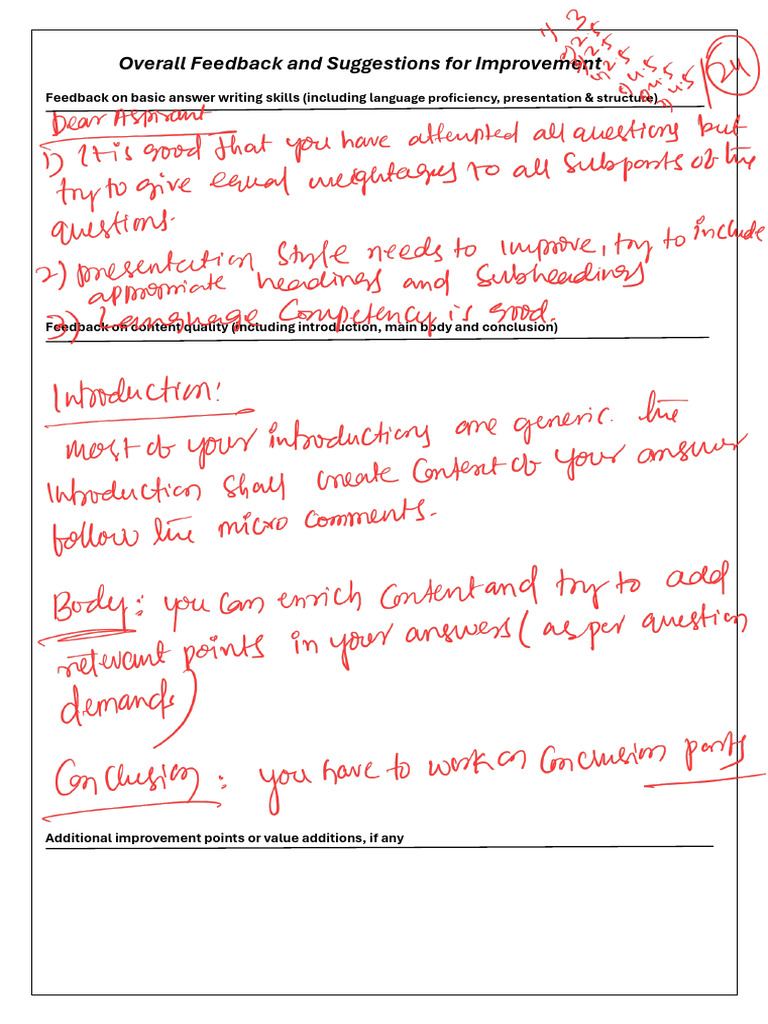 Overall Feedback and Suggestions for Improvement
1) 3
2.5
2.5
2.5
4.5
4.5
4.5
24
Feedback on basic answer writing skills (including language proficiency, presentation & structure)
Dear Aspirant
1) It is good that you have attempted all questions but
try to give equal weightages to all Subparts of the
questions.
2) presentation style needs to improve, try to include
appropriate headings and Subheadings
3) Language Competency is good.
Feedback on content quality (including introduction, main body and conclusion)
Introduction:
most of your introductions are generic. The
Introduction shall create Context of your answer
follow the micro comments.
Body: you can enrich Content and try to add
relevant points in your answers (as per question
demands)
Conclusion: you have to work on Conclusion parts
Additional improvement points or value additions, if any